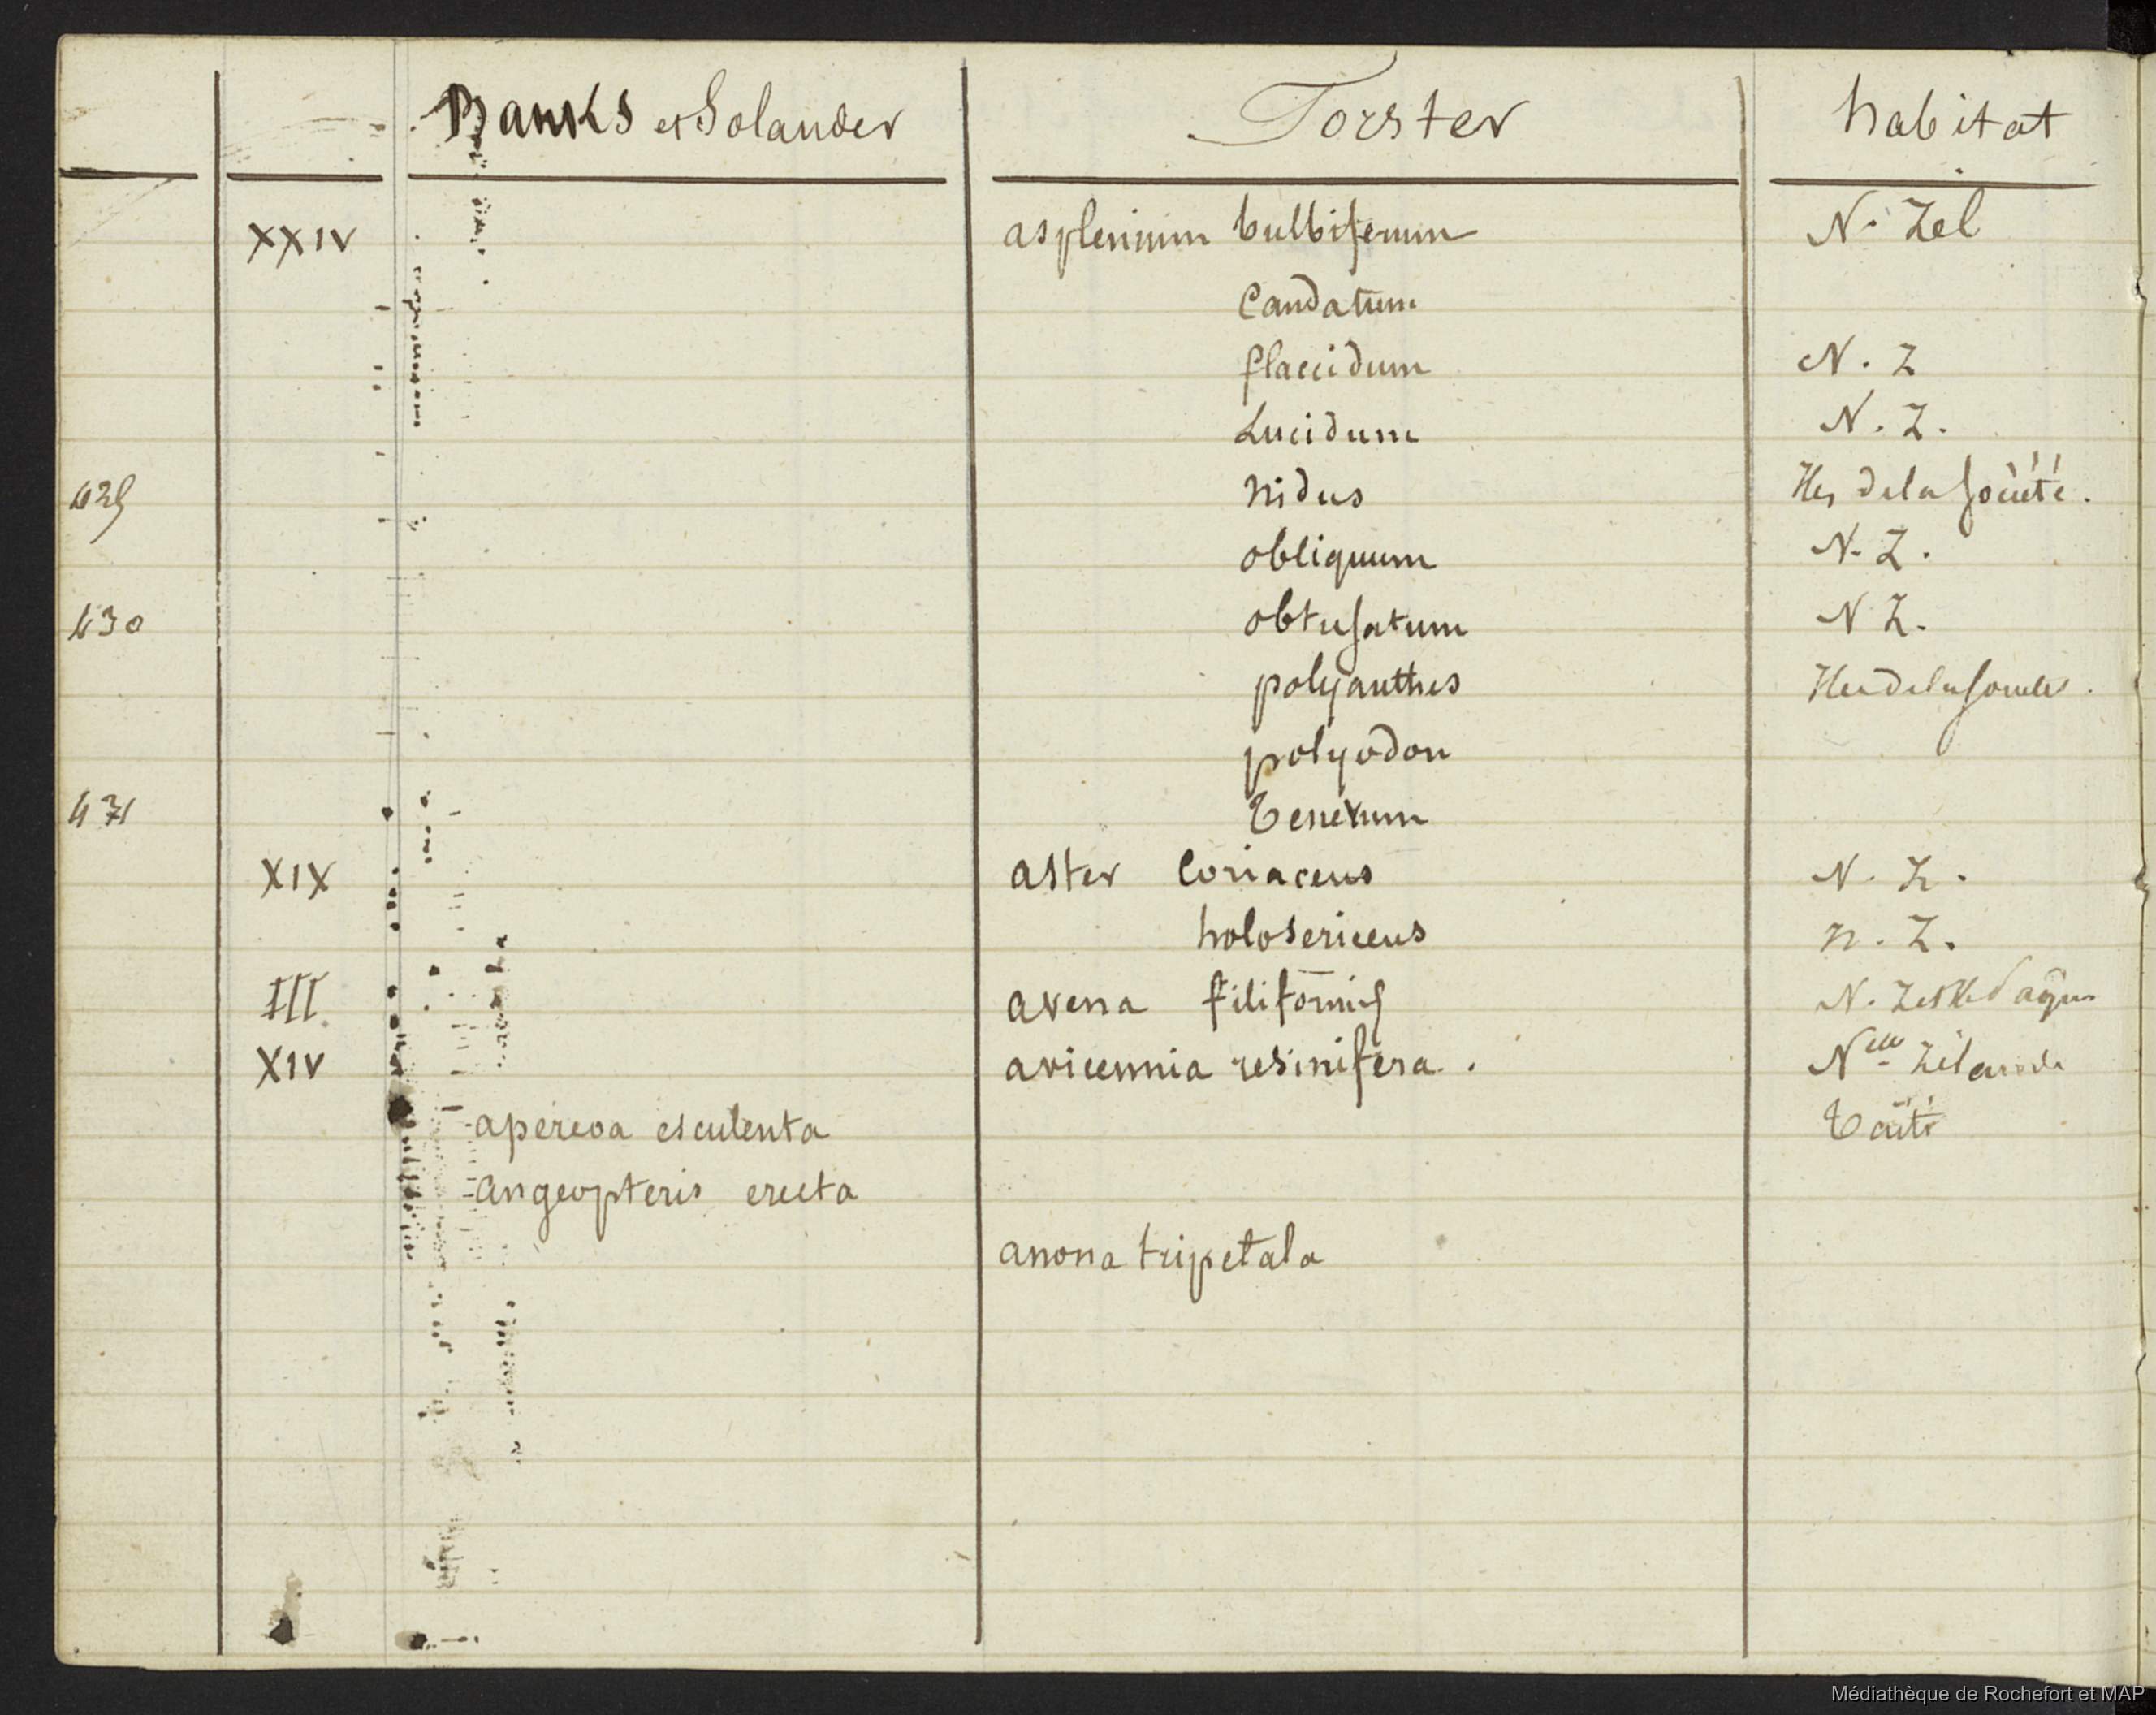 Banks et Solander Forster habitat
XXIV asplenium bulbiferum N. Zel
Caudatum
flaccidum N. Z
Lucidum N. Z.
429 nidus Iles de la Société.
obliquum N. Z.
430 obtusatum N Z.
polyanthes Iles de la Société.
polyodon
431 Tenerum
XIX aster Coriaceus N. Z.
holosericeus n. Z.
III avena filiformis N. Zel
XIV avicennia resinifera. Nelle Zélande
apereoa esculenta Taïti
angeopteris erecta
anona tripetala
Médiathèque de Rochefort et MAP